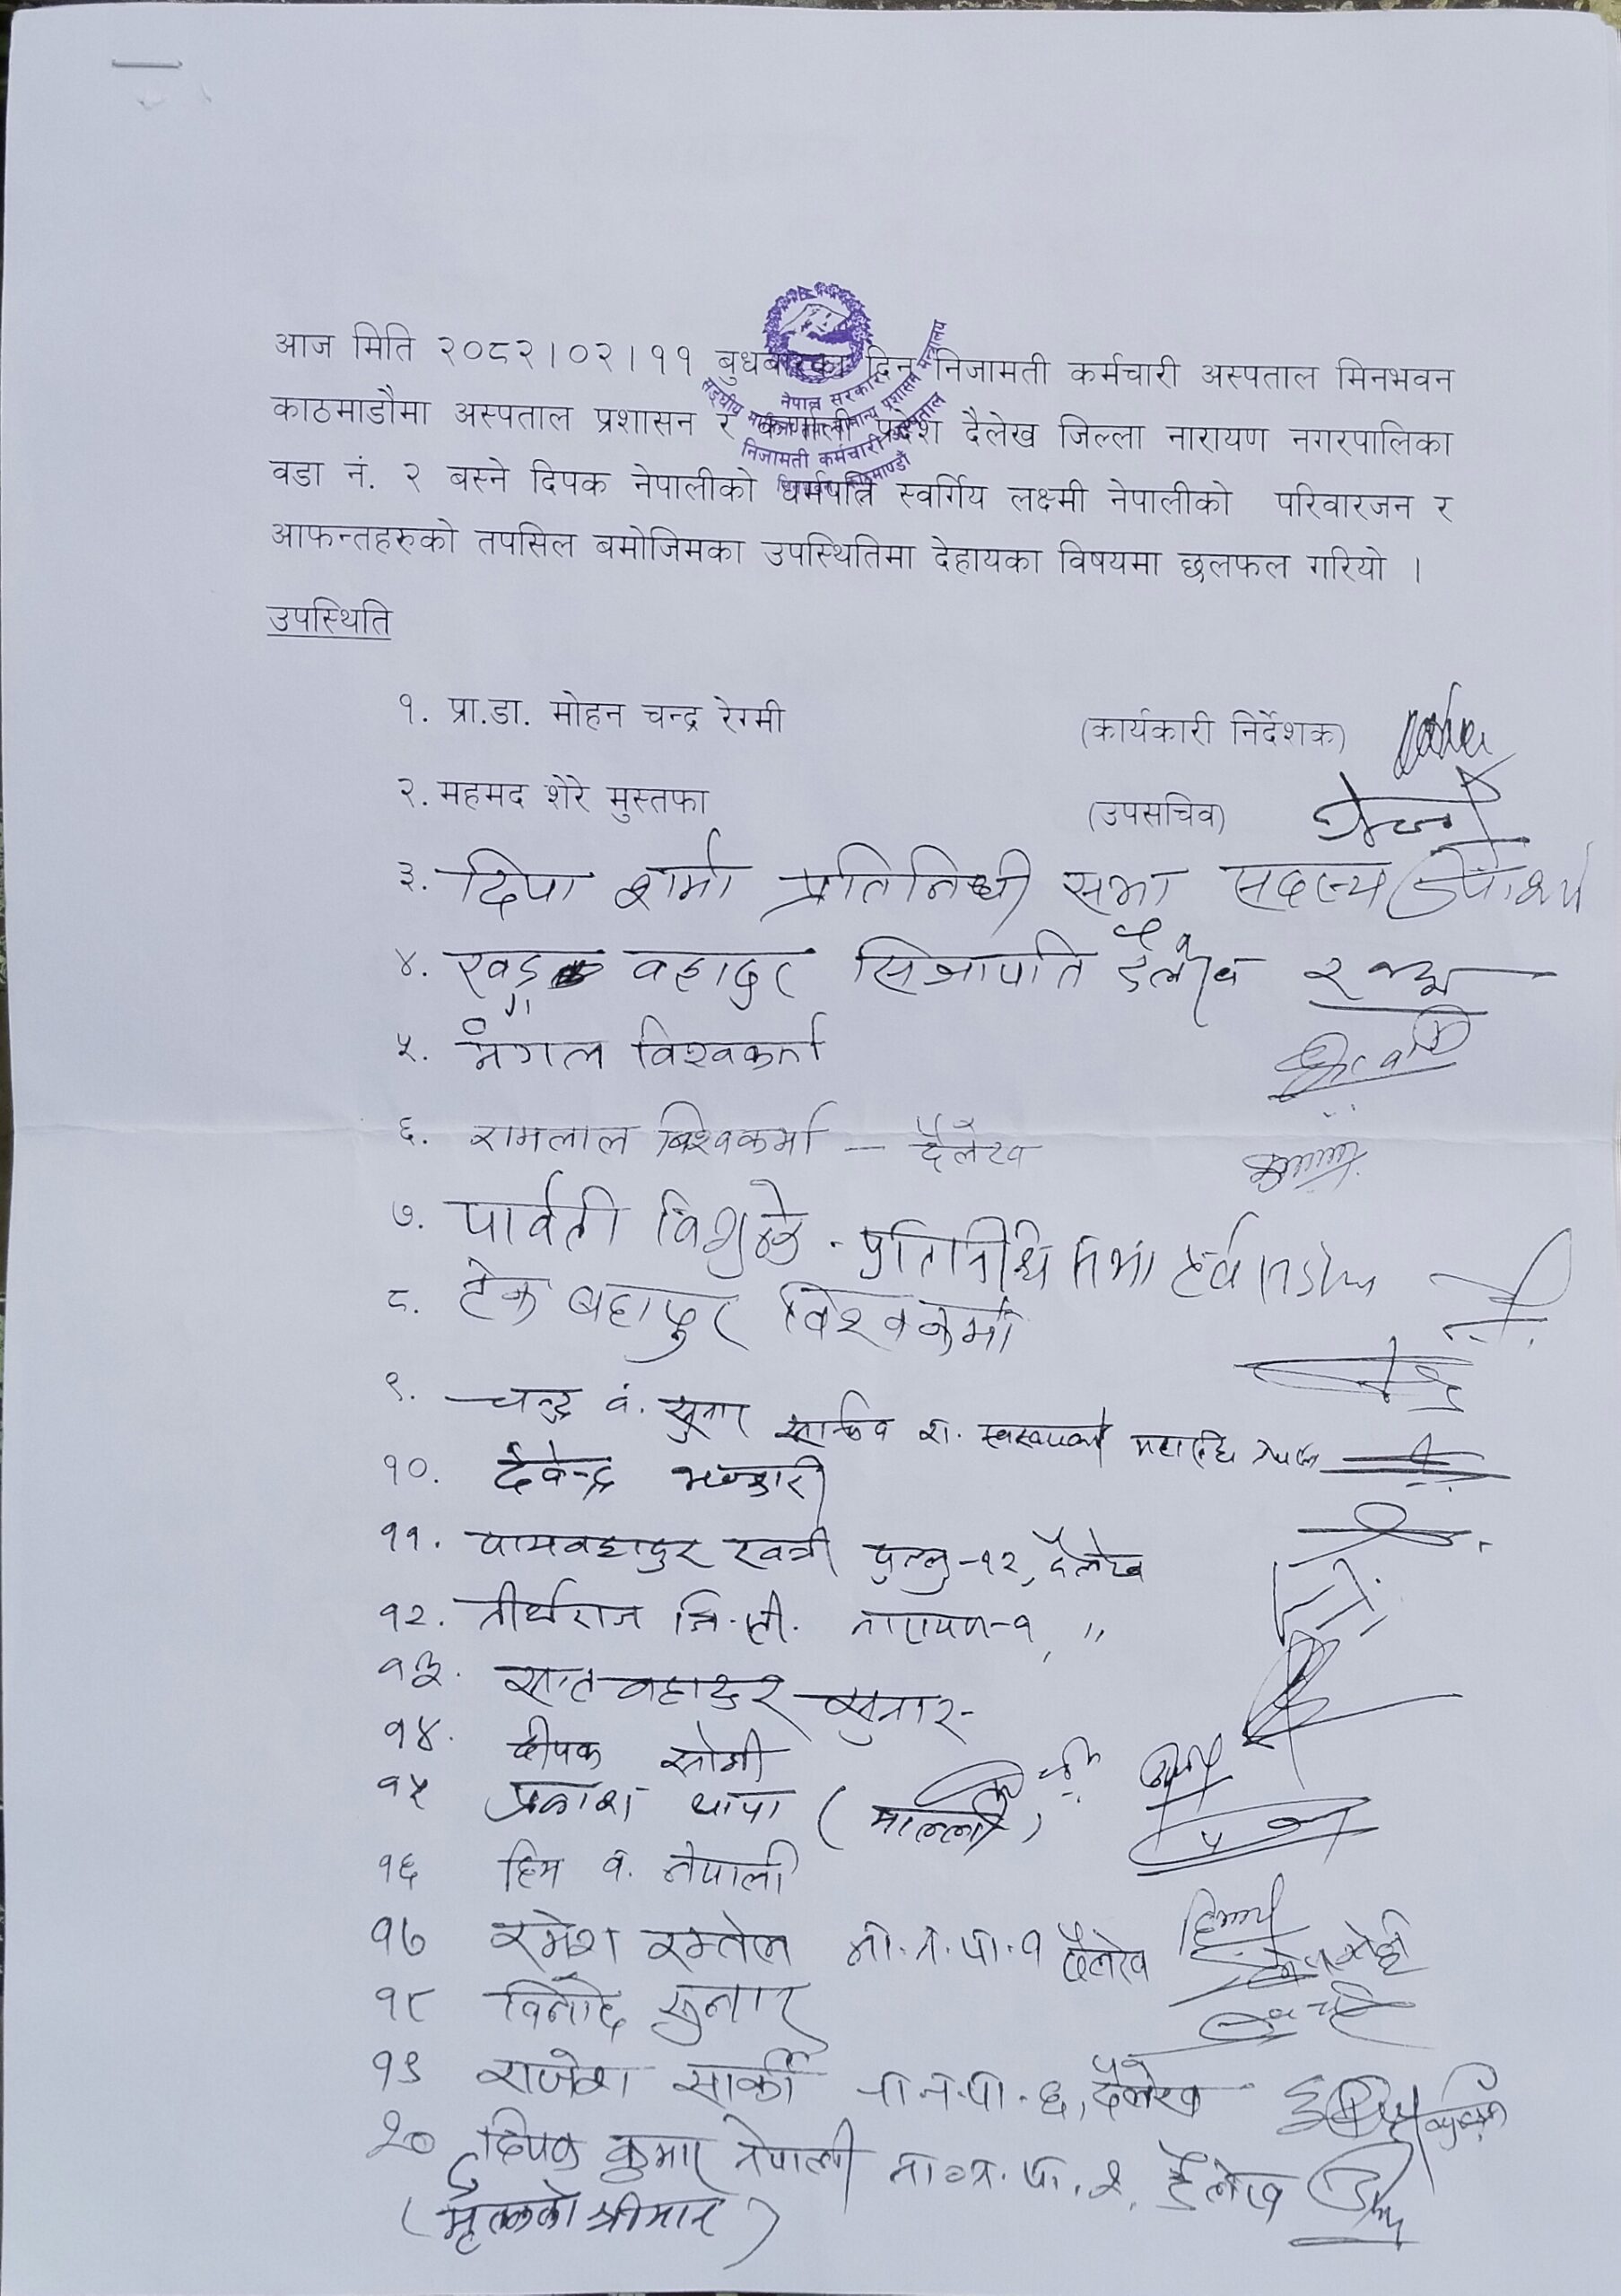 आज मिति २०८२।०२।११ बुधबारका दिन निजामती कर्मचारी अस्पताल मिनभवन
काठमाडौमा अस्पताल प्रशासन र कर्णाली प्रदेश दैलेख जिल्ला नारायण नगरपालिका
वडा नं. २ बस्ने दिपक नेपालीको धर्मपत्नि स्वर्गिय लक्ष्मी नेपालीको परिवारजन र
आफन्तहरुको तपसिल बमोजिमका उपस्थितिमा देहायका विषयमा छलफल गरियो ।
नेपाल सरकार
निजामती कर्मचारी अस्पताल
उपस्थिति
१. प्रा.डा. मोहन चन्द्र रेग्मी (कार्यकारी निर्देशक)
२. महमद शेरे मुस्तफा (उपसचिव)
३. दिपा शर्मा प्रतिनिधी सभा सदस्य
४. खड्ग बहादुर सिजापति दैलेख
५. मंगल विश्वकर्मा
६. रामलाल बिश्वकर्मा - दैलेख
७. पार्वती वि.शुंके - प्रतिनिधि सभा
८. टेक बहादुर विश्वकर्मा
९. चन्द्र व. सुनार
१०. देवेन्द्र भण्डारी
११. दैलेख
१२. तीर्थराज नारायण-१, "
१३. सन्त बहादुर सुनार
१४. दीपक
१५ प्रकाश थापा
१६ हिम व. नेपाली
१७ रमेश रम्तेल ना.न.पा.१ दैलेख
१८ विनोद सुनार
१९ राजेश सार्की ना.न.पा.६, दैलेख
२० दिपक कुमार नेपाली ना.न.पा.२, दैलेख
(मृतकको श्रीमान)